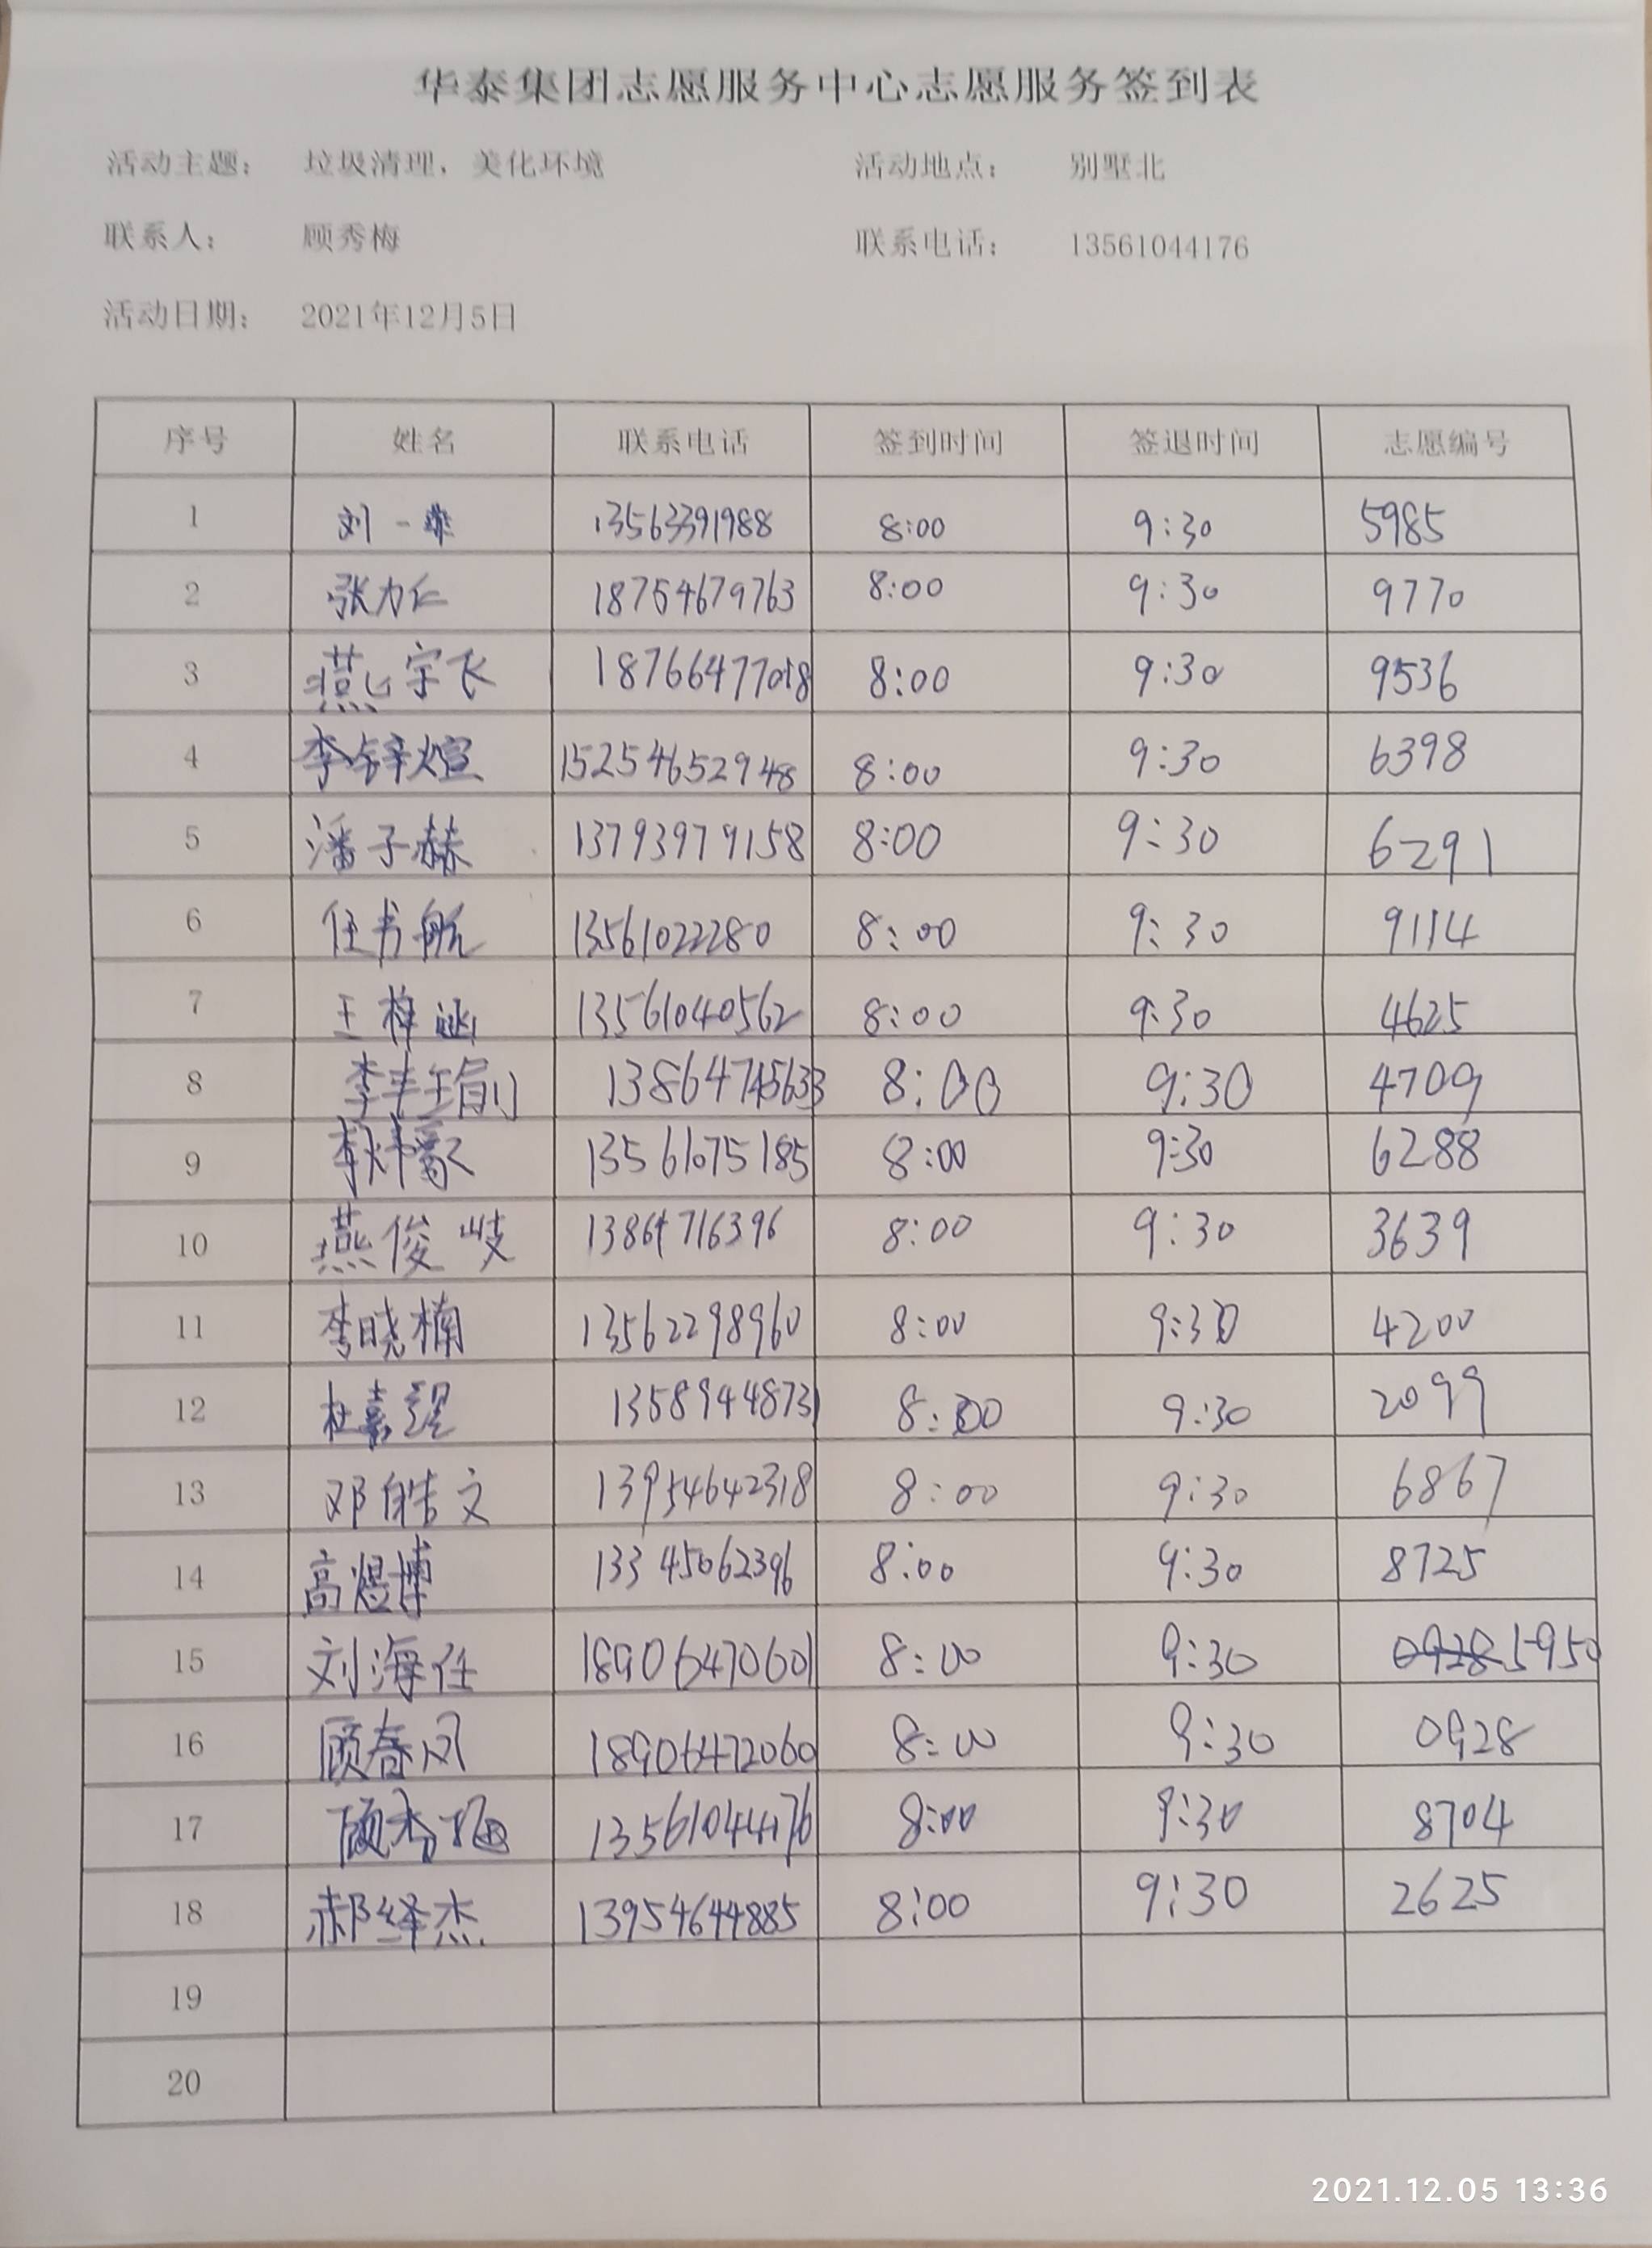 华泰集团志愿服务中心志愿服务签到表
活动主题： 垃圾清理，美化环境 活动地点： 别墅北
联系人： 顾秀梅 联系电话： 13561044176
活动日期： 2021年12月5日
序号 姓名 联系电话 签到时间 签退时间 志愿编号
1 刘一 13563391988 8:00 9:30 5985
2 张力仁 18754679763 8:00 9:30 9770
3 燕宇飞 18766477018 8:00 9:30 9536
4 李锌煊 15254652948 8:00 9:30 6398
5 潘子赫 13793979158 8:00 9:30 6291
6 任书航 13561022280 8:00 9:30 9114
7 王梓涵 13561040562 8:00 9:30 4625
8 李 8:00 9:30 4709
9 李炜豪 13561075185 8:00 9:30 6288
10 燕俊岐 13864716396 8:00 9:30 3639
11 李晓楠 13562298960 8:00 9:30 4200
12 杜嘉 13589448731 8:00 9:30 2099
13 邓皓文 13954642318 8:00 9:30 6867
14 高煜博 13345062396 8:00 9:30 8725
15 刘海任 18906470601 8:00 9:30 5950
16 顾春风 18906472060 8:00 9:30 0928
17 顾秀梅 13561044176 8:00 9:30 8704
18 郝绎杰 13954644885 8:00 9:30 2625
19
20
2021.12.05 13:36